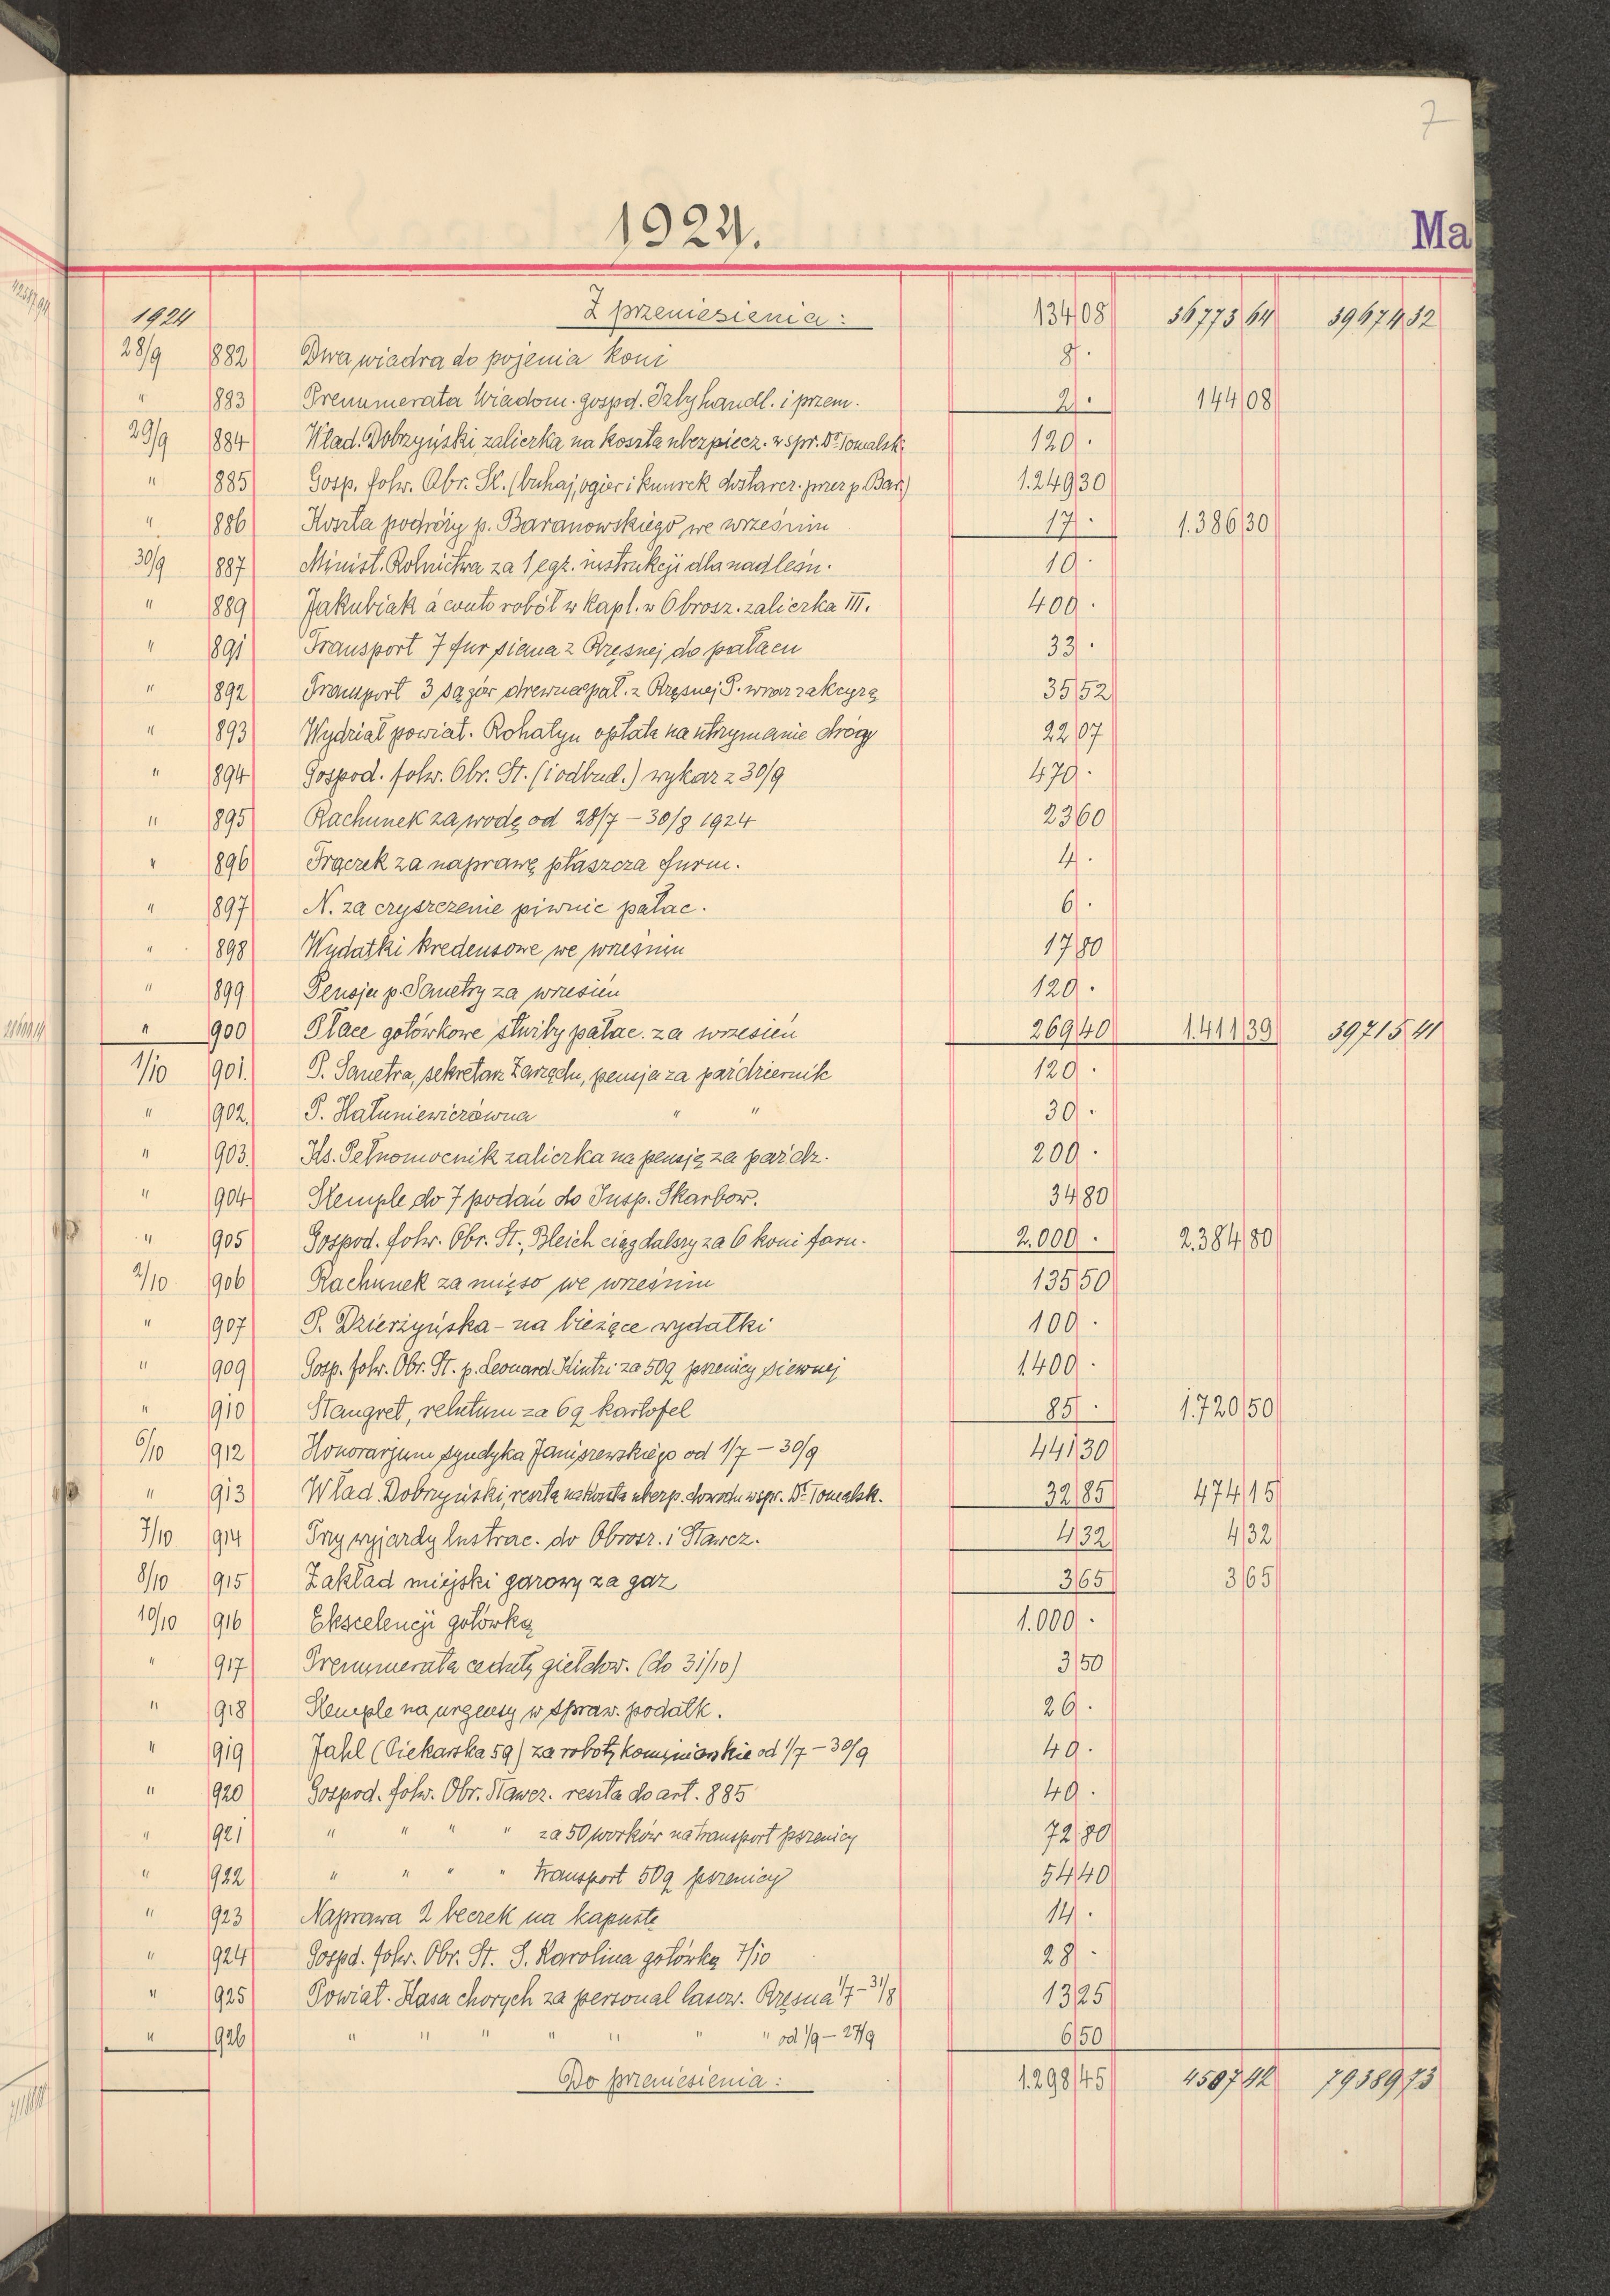 7
1924.
Ma
1924 Z przeniesienia: 134 08 36773 64 39674 32
28/9 882 Dwa wiadra do pojenia koni 8 .
" 883 Prenumerata Wiadom. gospd. Izby handl. i przem. 2 . 144 08
29/9 884 Wład. Dobrzyński, zaliczka na koszta ubezpiecz. w spr. Dr. Tomalsk. 120 .
" 885 Gosp. folw. Obr. St. (buhaj, ogier i knurek dostarcz. przez p. Bar.) 1.249 30
" 886 Koszta podróży p. Baranowskiego we wrześniu 17 . 1.386 30
30/9 887 Minist. Rolnictwa za 1 egz. instrukcji dla nadleśn. 10 .
" 889 Jakubiak á conto robót w kapl. w Obrosz. zaliczka III. 400 .
" 891 Transport 7 fur siana z Rzęsnej do pałacu 33 .
" 892 Transport 3 sągów drewna opał. z Rzęsnej P. wraz z akcyzą 35 52
" 893 Wydział powiat. Rohatyn opłata na utrzymanie dróg 22 07
" 894 Gospod. folw. Obr. St. (i odbud.) wykaz z 30/9 470 .
" 895 Rachunek za wodę od 28/7 – 30/8 1924 23 60
" 896 Frączek za naprawę płaszcza furm. 4 .
" 897 N. za czyszczenie piwnic pałac. 6 .
" 898 Wydatki kredensowe we wrześniu 17 80
" 899 Pensja p. Sanetry za wrzesień 120 .
" 900 Płace gotówkowe służby pałac. za wrzesień 269 40 1.411 39 39715 41
1/10 901. P. Sanetra, sekretarz Zarządu, pensja za październik 120 .
" 902. P. Hałuniewiczówna " " 30 .
" 903. Ks. Pełnomocnik zaliczka na pensję za paźdz. 200 .
" 904 Stemple do 7 podań do Insp. Skarbow. 34 80
" 905 Gospod. folw. Obr. St., Bleich ciąg dalszy za 6 koni forn. 2.000 . 2.384 80
2/10 906 Rachunek za mięso we wrześniu 135 50
" 907 P. Dzierżyńska – na bieżące wydatki 100 .
" 909 Gosp. folw. Obr. St. p. Leonard Kintzi za 50q pszenicy siewnej 1.400 .
" 910 Stangret, relutum za 6q kartofel 85 . 1.720 50
6/10 912 Honorarjum syndyka Janiszewskiego od 1/7 – 30/9 441 30
" 913 Wład. Dobrzyński, reszta na koszta ubezp. dowodu w spr. Dr. Tomalsk. 32 85 474 15
7/10 914 Trzy wyjazdy lustrac. do Obrosz. i Stawcz. 4 32 4 32
8/10 915 Zakład miejski gazowy za gaz 3 65 3 65
10/10 916 Ekscelencji gotówką 1.000 .
" 917 Prenumerata ceduły giełdow. (do 31/10) 3 50
" 918 Stemple na urgensy w spraw. podatk. 26 .
" 919 Jahl (Piekarska 59) za roboty kominiarskie od 1/7 – 30/9 40 .
" 920 Gospod. folw. Obr. Stawcz. reszta do art. 885 40 .
" 921 " " " " za 50 worków na transport pszenicy 72 80
" 922 " " " " transport 50q pszenicy 54 40
" 923 Naprawa 2 beczek na kapustę 14 .
" 924 Gospd. folw. Obr. St. S. Karolina gotówką 7/10 28 .
" 925 Powiat. Kasa chorych za personal lasow. Rzęsna 1/7 – 31/8 13 25
" 926 " " " " " " " od 1/9 – 27/9 6 50
Do przeniesienia: 1.298 45 4587 42 79389 73